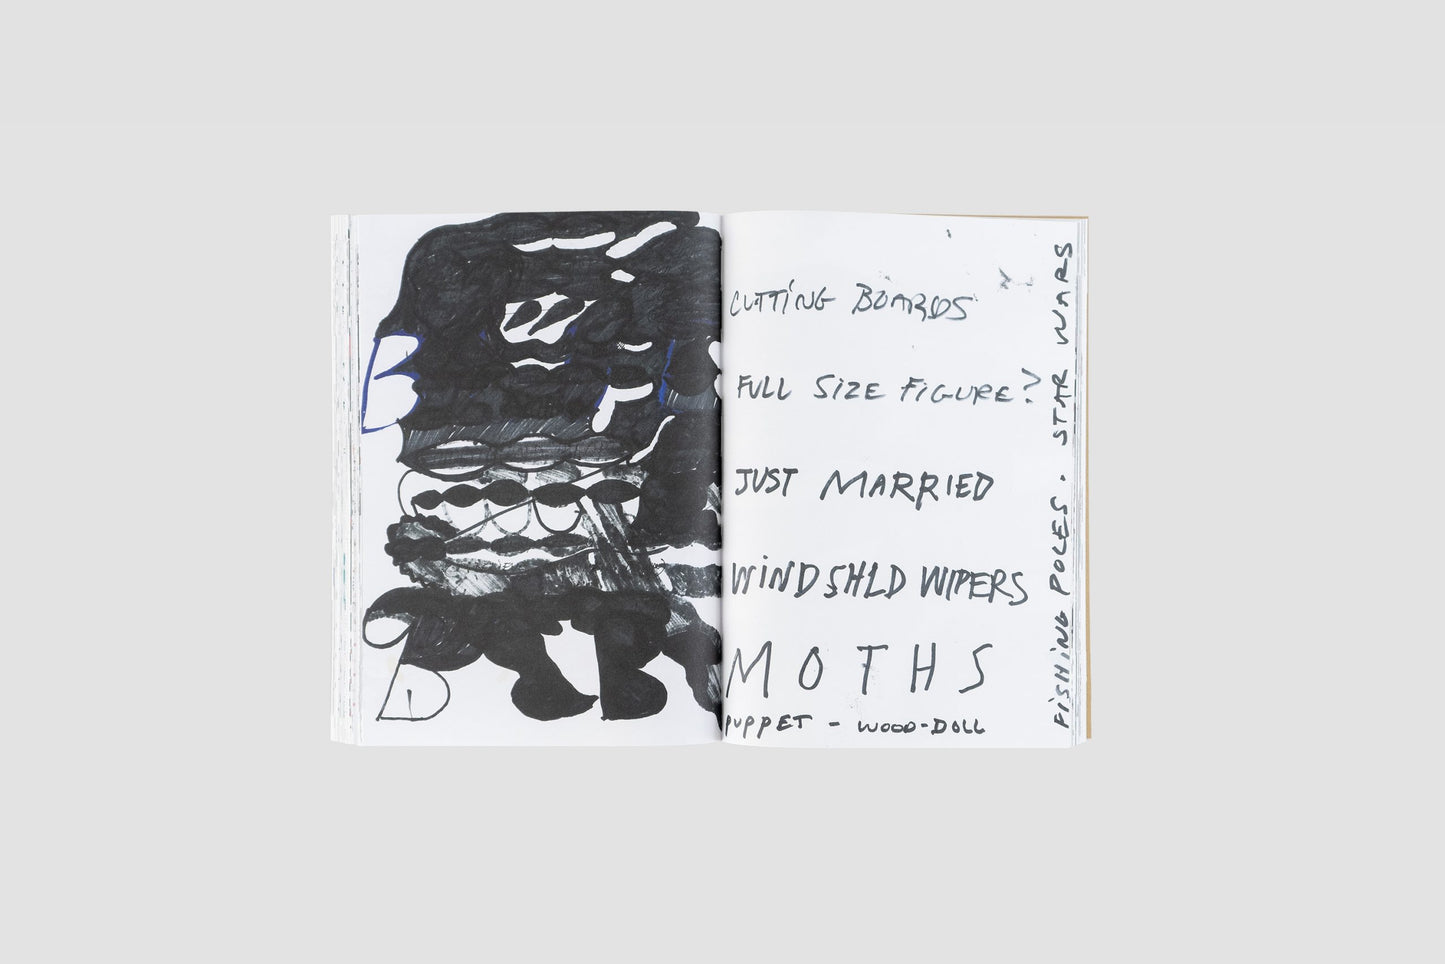 CUTTING BOARDS
FULL SIZE FIGURE?
JUST MARRIED
WINDSHLD WIPERS
MOTHS
PUPPET - WOOD-DOLL
FISHING POLES. STAR WARS
B
D